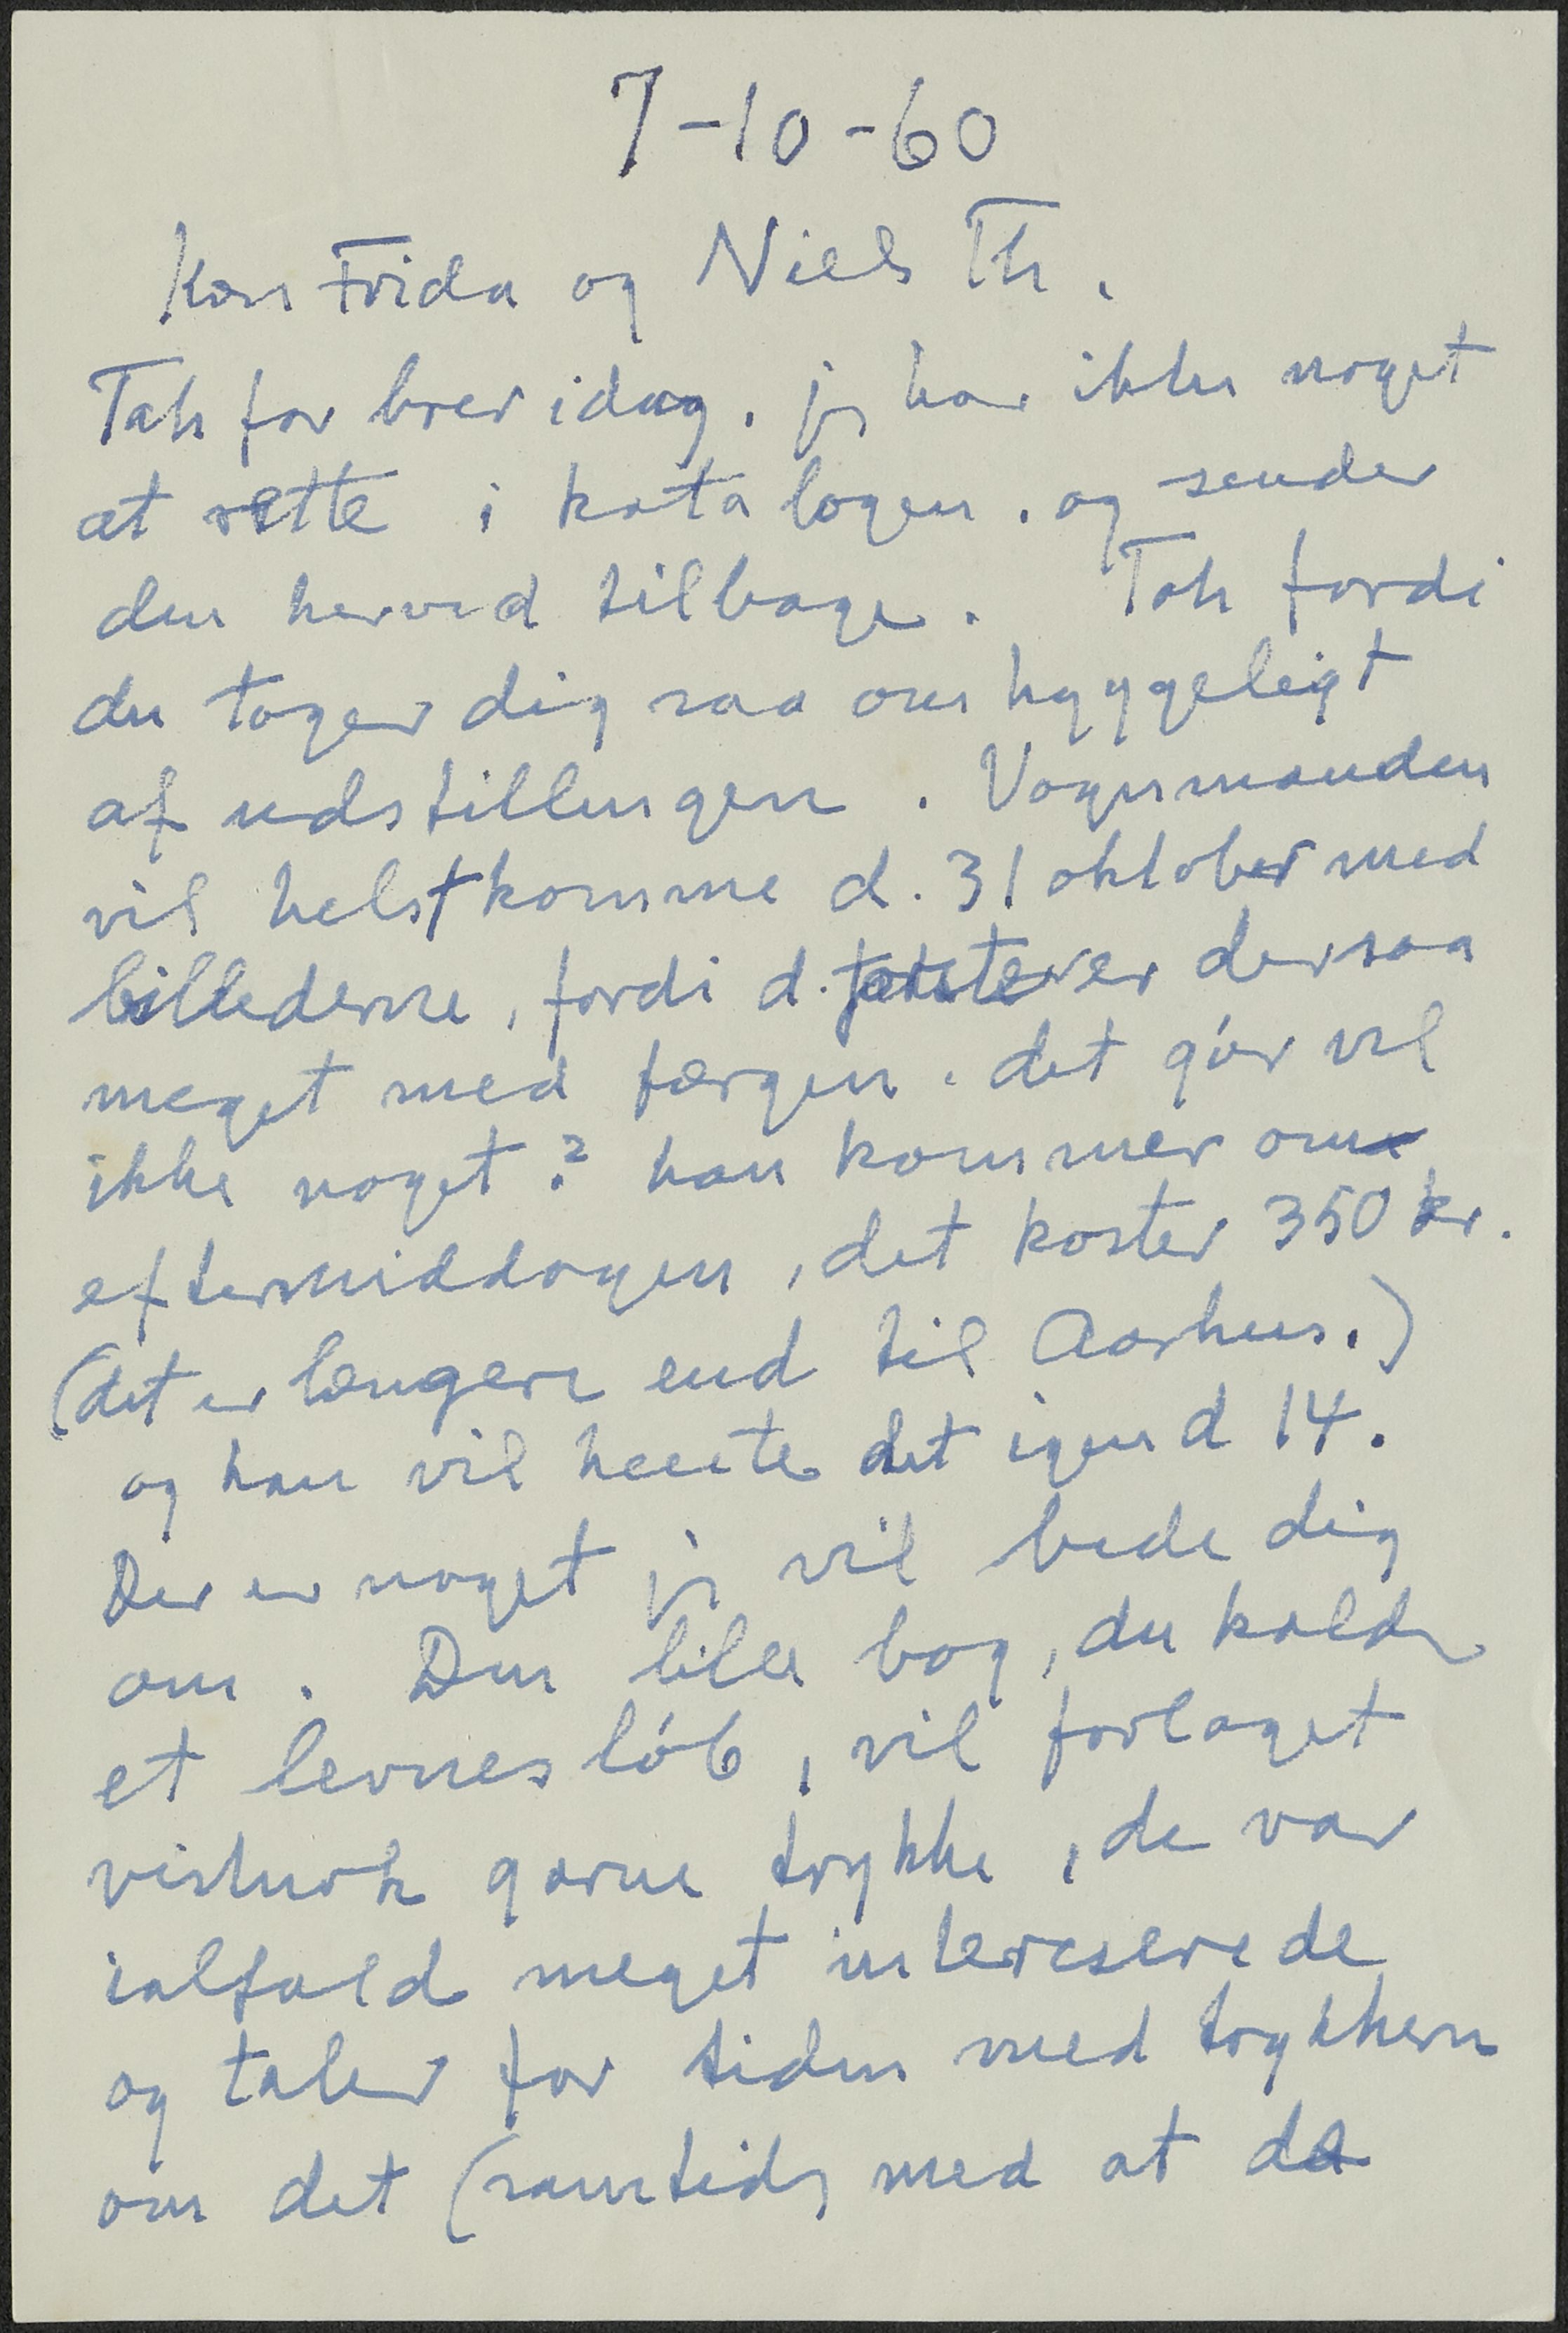 7-10-60
Kær Frida og Niels Th.
Tak for brev idag. jeg har ikke noget
at rette i katalogen. og sender
den herved tilbage. Tak fordi
du tager dig saa omhyggeligt
af udstillingen. Vognmanden
vil helst komme d. 31 oktober med
billederne, fordi d. første er der saa
meget med færgen. det gör vel
ikke noget? han kommer om
eftermiddagen, det koster 350 kr.
(det er længere end til Aarhus.)
og han vil hente det igen d 14.
Der er noget jeg vil bede dig
om. Den lille bog, du kalder
et levnesløb, vil forlaget
vistnok gerne trykke, de var
ialfald meget intereserede
og taler for tiden med trykkeren
om det (samtidig med at de